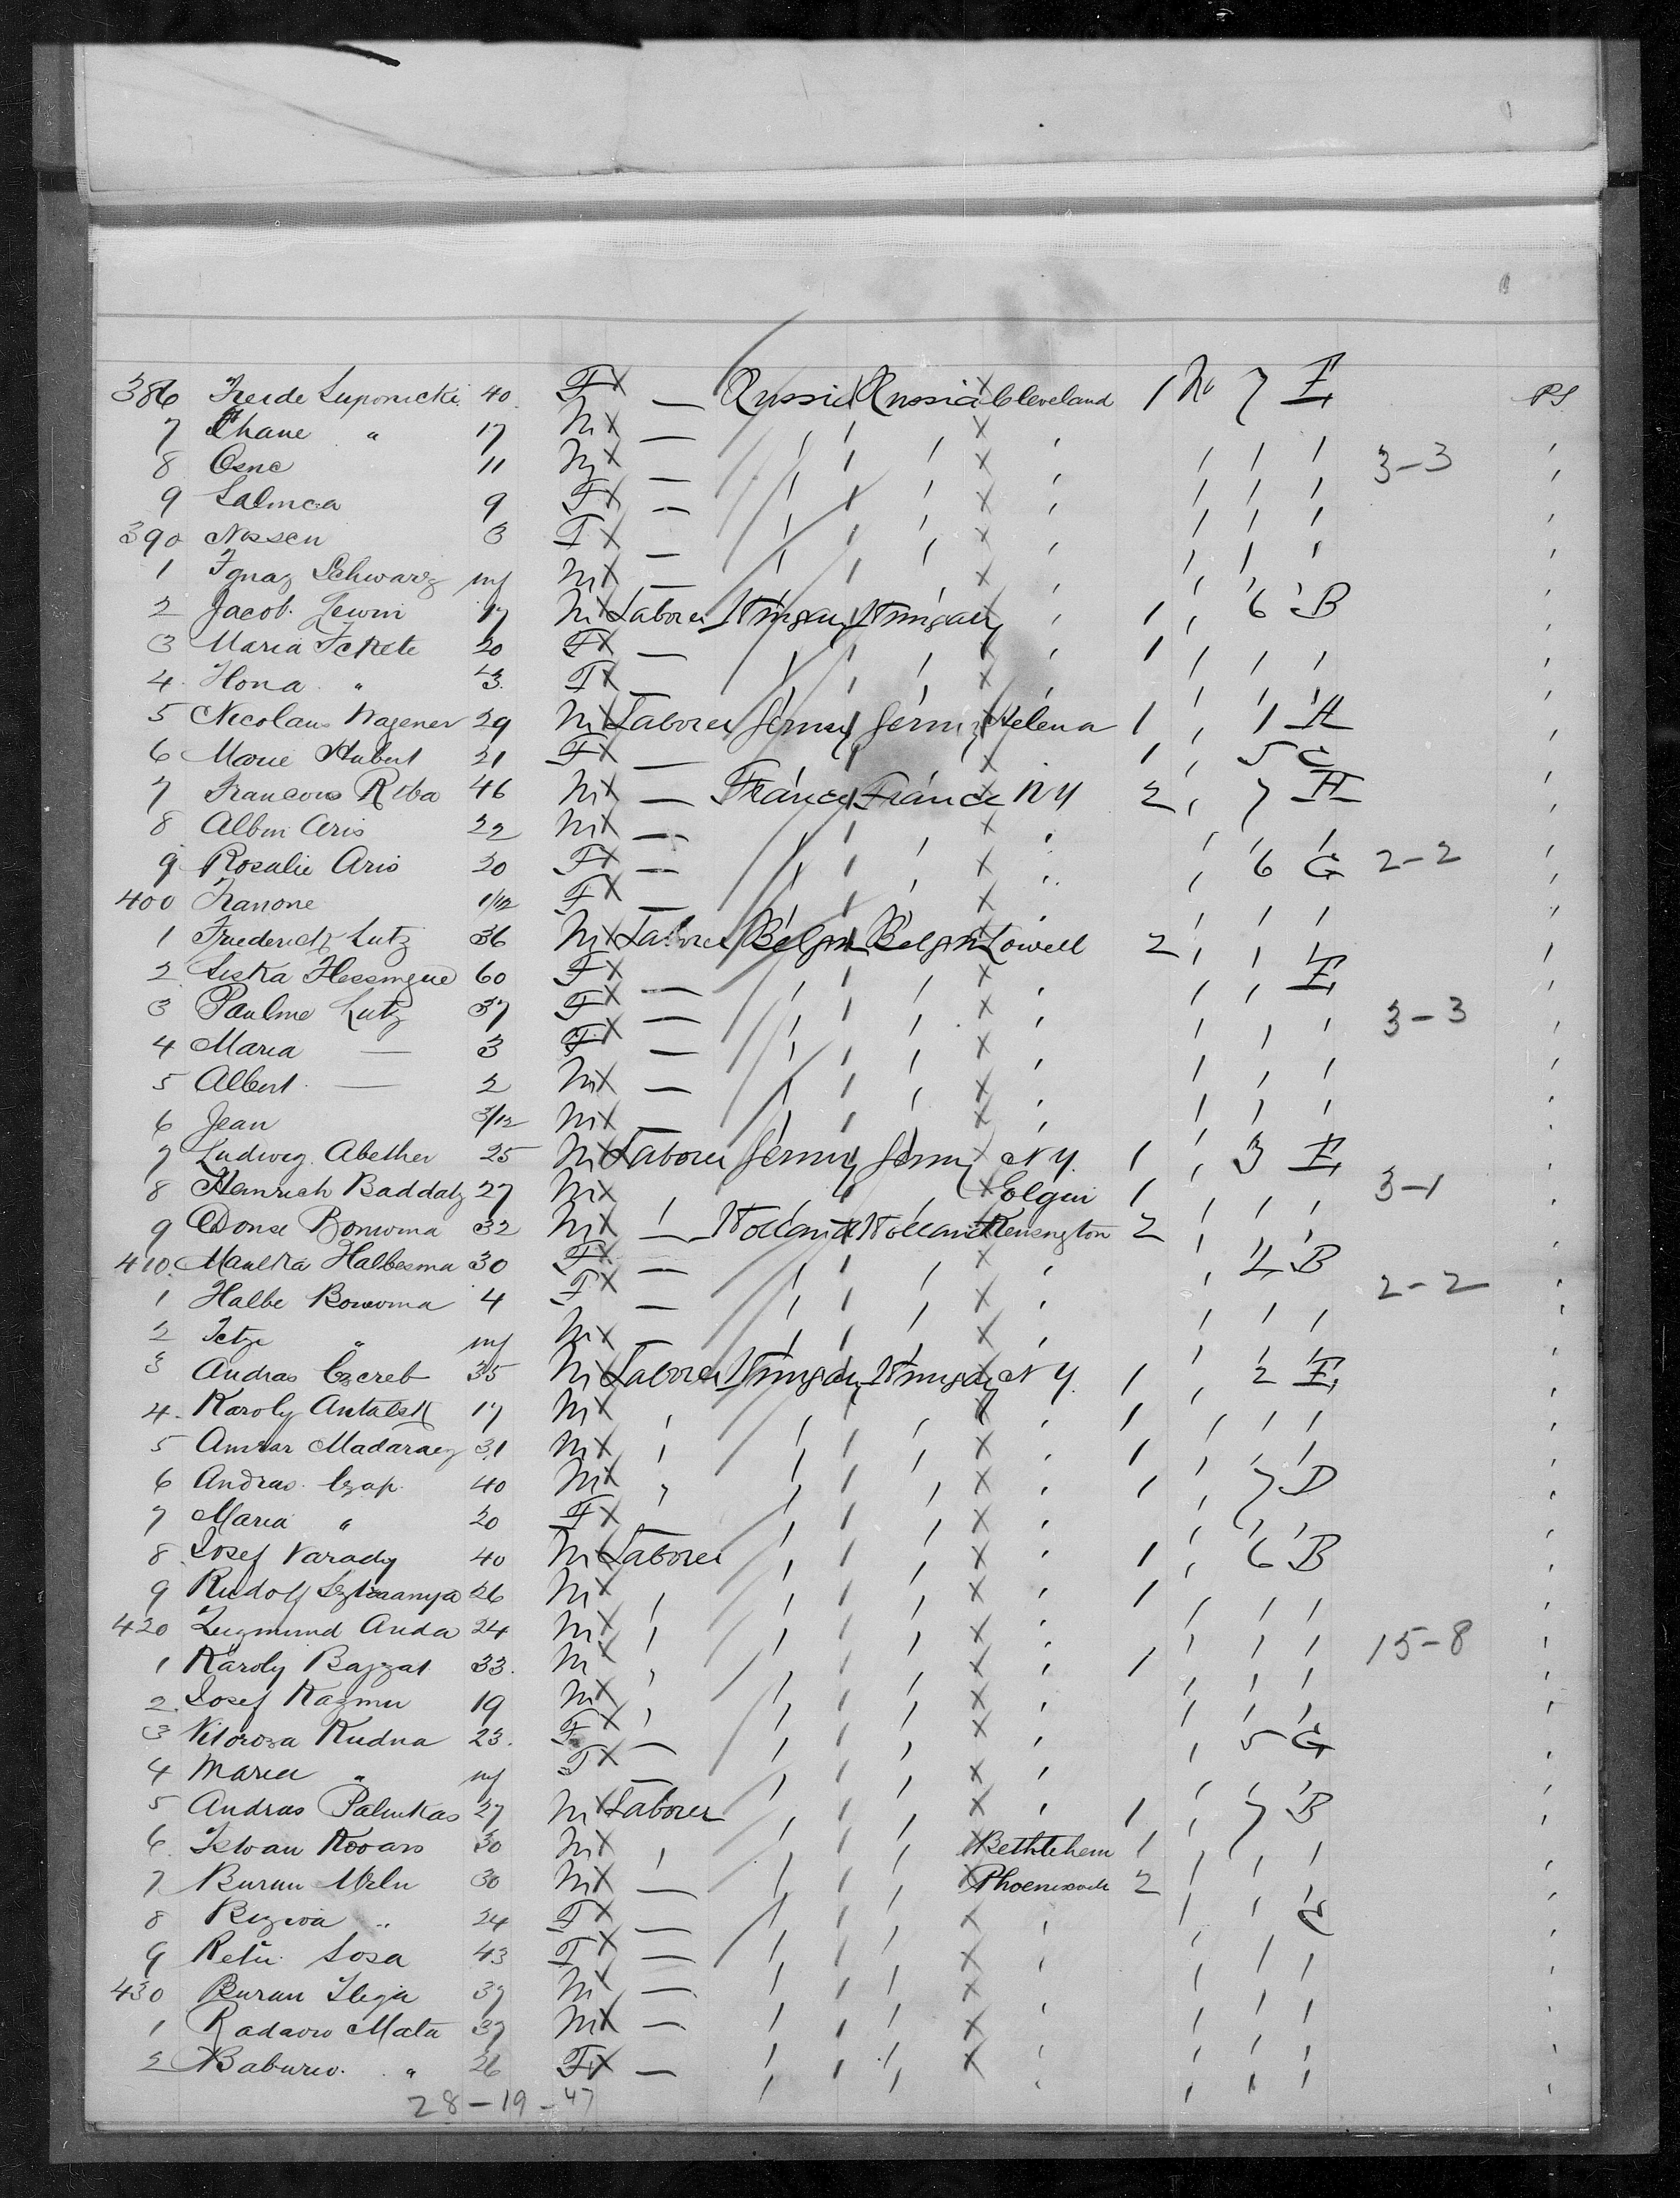 386 Freide Suponicki 40 F X — Russia Russia X Cleveland 1 No 7 E PS
7 Chane " 17 M X —
8 Osne 11 M X — 3-3
9 Salmea 9 F X —
390 Nossen 3 F X —
1 Ignaz Schwarz inf M X —
2 Jacob Lewin 17 M X Laborer Hungary Hungary 1 6 B
3 Maria Fekete 20 F X — 1
4 Ilona " 3 F X —
5 Nicolaus Wagener 29 M X Laborer Germy Germy Helena 1 1 H
6 Marie Hubert 21 F X — 1 5 C
7 Francois Riba 46 M X — France France N Y 2 7 H
8 Albin Aris 22 M X —
9 Rosalie Aris 20 F X — 6 G 2-2
400 Franone 1/12 F X —
1 Friederich Lutz 36 M X Laborer Belgn Belgn Lowell 2
2 Siska 60 F X — E
3 Pauline Lutz 37 F X — 3-3
4 Maria — 3 F X —
5 Albert — 2 M X —
6 Jean 3/12 M X —
7 Ludwig Abether 25 M X Laborer Germy Germy N Y. 1 3 E
8 Heinrich Baddatz 27 M X Elgin 1 3-1
9 Bonwma 32 M X — Holland Holland Kensington 2
410 Halbesma 30 F X — 4 B
1 Halbe Bouwma 4 F X — 2-2
2 Tetje " inf M X —
3 Andras Czereb 35 M X Laborer Hungary Hungary N Y. 1 2 E
4 Karoly Antalsk 17 M X 1
5 Madaracz 31 M X 1
6 Andras Czap 40 M X 1 7 D
7 Maria " 20 F X
8 Josef Varady 40 M X Laborer 1 6 B
9 Rudolf 26 M X 1
420 Zugmund Anda 24 M X 15-8
1 Karoly Bazzat 33 M X 1
2 Josef Kazmer 19 M X
3 Kudna 23 F X — 5 G
4 Maria " inf F X —
5 Andras Palinkas 27 M X Laborer 1 7 B
6 Istvan Kovars 30 M X Bethlehem 1
7 Burun 30 M X — Phoenixville 2
8 " 24 F X — C
9 Sosa 43 F X —
430 Burun Ilija 37 M X —
1 Mata 37 M X —
2 " 26 F X —
28-19-47